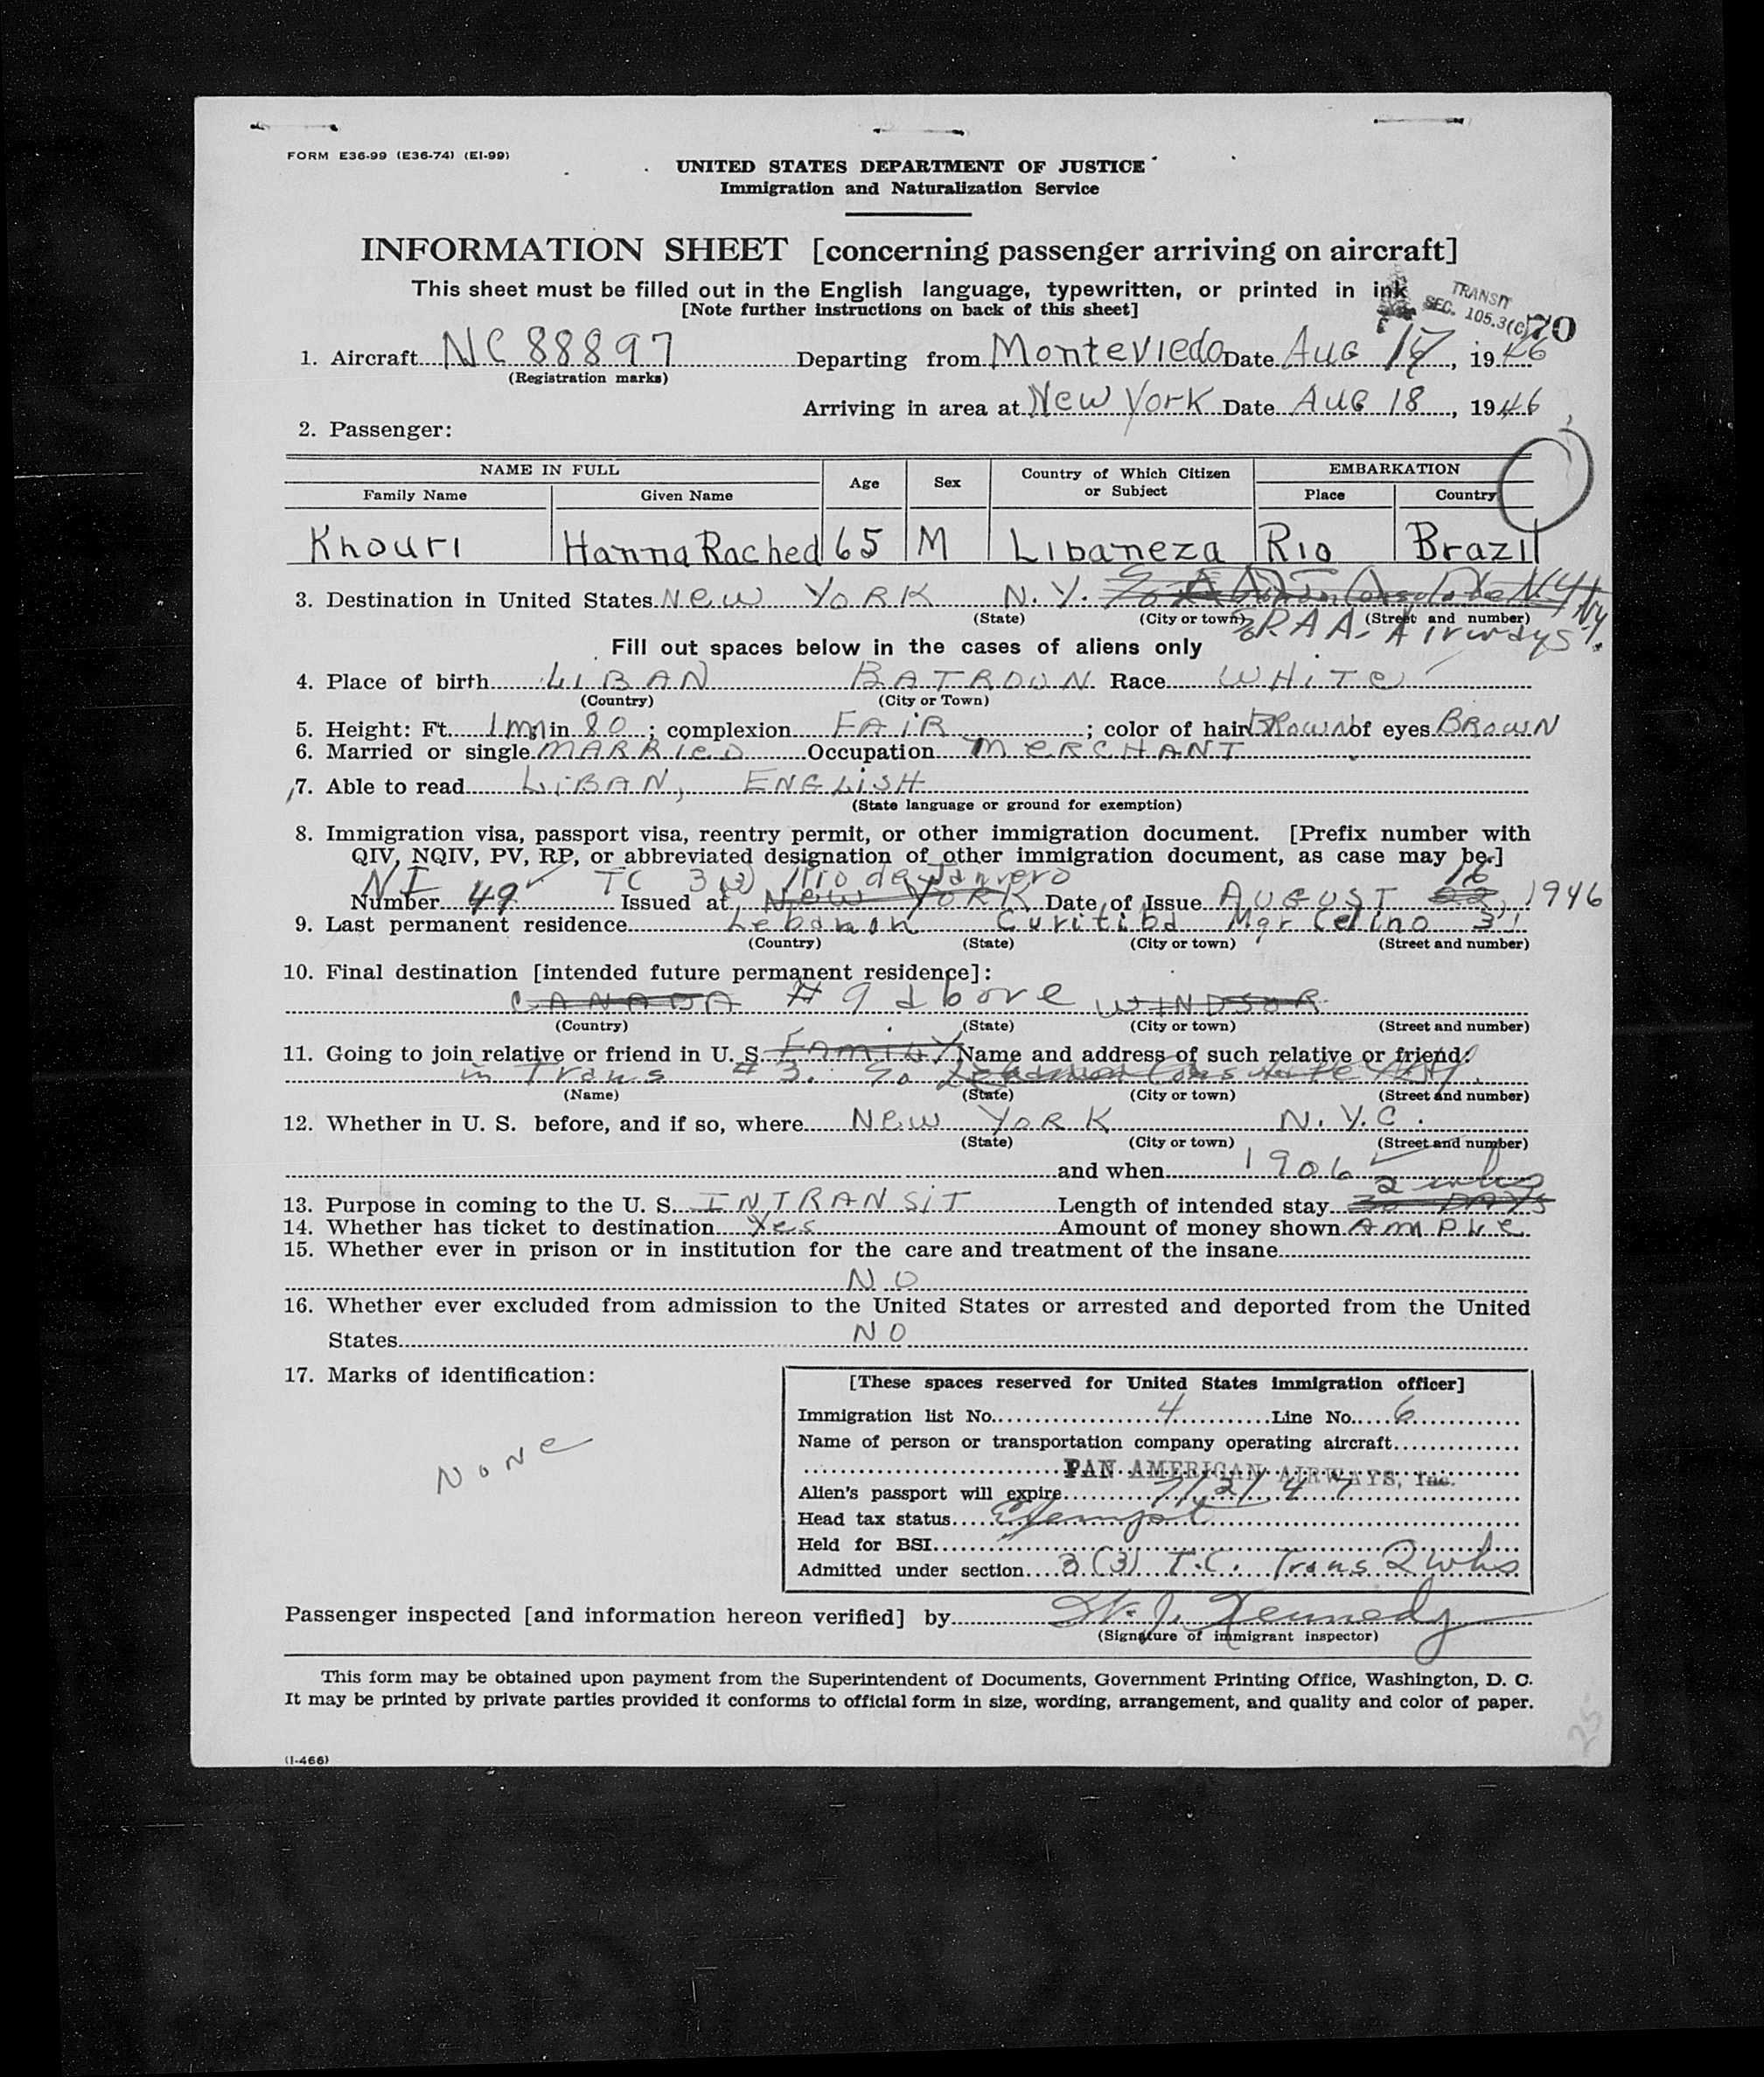 FORM E36-99 (E36-74) (EI-99)
UNITED STATES DEPARTMENT OF JUSTICE
Immigration and Naturalization Service
INFORMATION SHEET [concerning passenger arriving on aircraft]
This sheet must be filled out in the English language, typewritten, or printed in ink
[Note further instructions on back of this sheet]
TRANSIT
SEC. 105.3(C)
70
1. Aircraft NC 88897 Departing from Monteviedo Date Aug 17, 1946
(Registration marks)
Arriving in area at New York Date Aug 18, 1946
2. Passenger:
NAME IN FULL Age Sex Country of Which Citizen or Subject EMBARKATION
Family Name Given Name Place Country
Khouri Hanna Rached 65 M Libaneza Rio Brazil
3. Destination in United States New York N.Y.
(State) (City or town) (Street and number)
PAA-Airways N.Y.
Fill out spaces below in the cases of aliens only
4. Place of birth LIBAN BATROUN Race WHITE
(Country) (City or Town)
5. Height: Ft. 1m in 80; complexion FAIR; color of hair BROWN of eyes BROWN
6. Married or single MARRIED Occupation MERCHANT
7. Able to read LIBAN, ENGLISH
(State language or ground for exemption)
8. Immigration visa, passport visa, reentry permit, or other immigration document. [Prefix number with
QIV, NQIV, PV, RP, or abbreviated designation of other immigration document, as case may be.]
NI TC Rio de Janeiro 16
Number 49 Issued at New York Date of Issue AUGUST 22, 1946
9. Last permanent residence Lebanon Curitiba Mgr Celino 31
(Country) (State) (City or town) (Street and number)
10. Final destination [intended future permanent residence]:
CANADA # 9 above WINDSOR
(Country) (State) (City or town) (Street and number)
11. Going to join relative or friend in U. S. FAMILY Name and address of such relative or friend:
in Trans # 3.
(Name) (State) (City or town) (Street and number)
12. Whether in U. S. before, and if so, where New York N.Y.C.
(State) (City or town) (Street and number)
and when 1906
2 whs
13. Purpose in coming to the U. S. INTRANSIT Length of intended stay 30 DAYS
14. Whether has ticket to destination Yes Amount of money shown AMPLE
15. Whether ever in prison or in institution for the care and treatment of the insane
NO
16. Whether ever excluded from admission to the United States or arrested and deported from the United
States NO
17. Marks of identification:
NONE
[These spaces reserved for United States immigration officer]
Immigration list No. 4 Line No. 6
Name of person or transportation company operating aircraft
PAN AMERICAN AIRWAYS, Inc.
Alien's passport will expire 7/2/47
Head tax status Exempt
Held for BSI
Admitted under section 3(3) T.C. Trans 2 whs
Passenger inspected [and information hereon verified] by W. J. Kennedy
(Signature of immigrant inspector)
This form may be obtained upon payment from the Superintendent of Documents, Government Printing Office, Washington, D. C.
It may be printed by private parties provided it conforms to official form in size, wording, arrangement, and quality and color of paper.
25
(I-466)